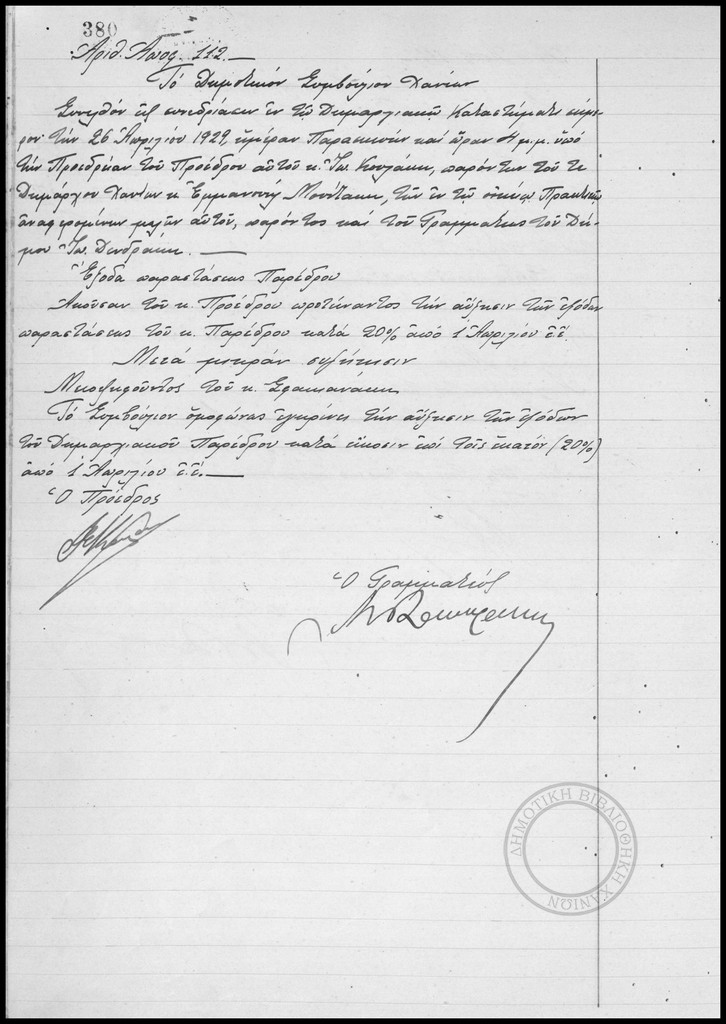 380
Ἀριθ. Ἀποφ. 112.—
Τό Δημοτικόν Συμβούλιον Χανίων
Συνελθόν εἰς συνεδρίασιν ἐν τῷ Δημαρχιακῷ Καταστήματι σήμε-
ρον τήν 26 Ἀπριλίου 1929, ἡμέραν Παρασκευήν καί ὥραν 4 μ.μ. ὑπό
τήν Προεδρείαν τοῦ Προέδρου αὐτοῦ κ. Ἰω. παρόντων τοῦ τε
Δημάρχου Χανίων κ. Ἐμμανουήλ Μουντάκη, τῶν ἐν τῷ οἰκείῳ Πρακτικῷ
ἀναφερομένων μελῶν αὐτοῦ, παρόντος καί τοῦ Γραμματέως τοῦ Δή-
μου Ἰω. Δενδράκη.—
Ἔξοδα παραστάσεως Παρέδρου
Ἀκοῦσαν τοῦ κ. Προέδρου προτείναντος τήν αὔξησιν τῶν ἐξόδων
παραστάσεως τοῦ κ. Παρέδρου κατά 20% ἀπό 1 Ἀπριλίου ἐ.ἔ.
Μετά μικράν συζήτησιν
Μειοψηφοῦντος τοῦ κ. Σφακιανάκη
Τό Συμβούλιον ὁμοφώνως ἐγκρίνει τήν αὔξησιν τῶν ἐξόδων
τοῦ Δημαρχιακοῦ Παρέδρου κατά εἴκοσιν ἐπί τοῖς ἑκατόν (20%)
ἀπό 1 Ἀπριλίου ἐ.ἔ.—
Ὁ Πρόεδρος
Ὁ Γραμματεύς
ΔΗΜΟΤΙΚΗ ΒΙΒΛΙΟΘΗΚΗ ΧΑΝΙΩΝ